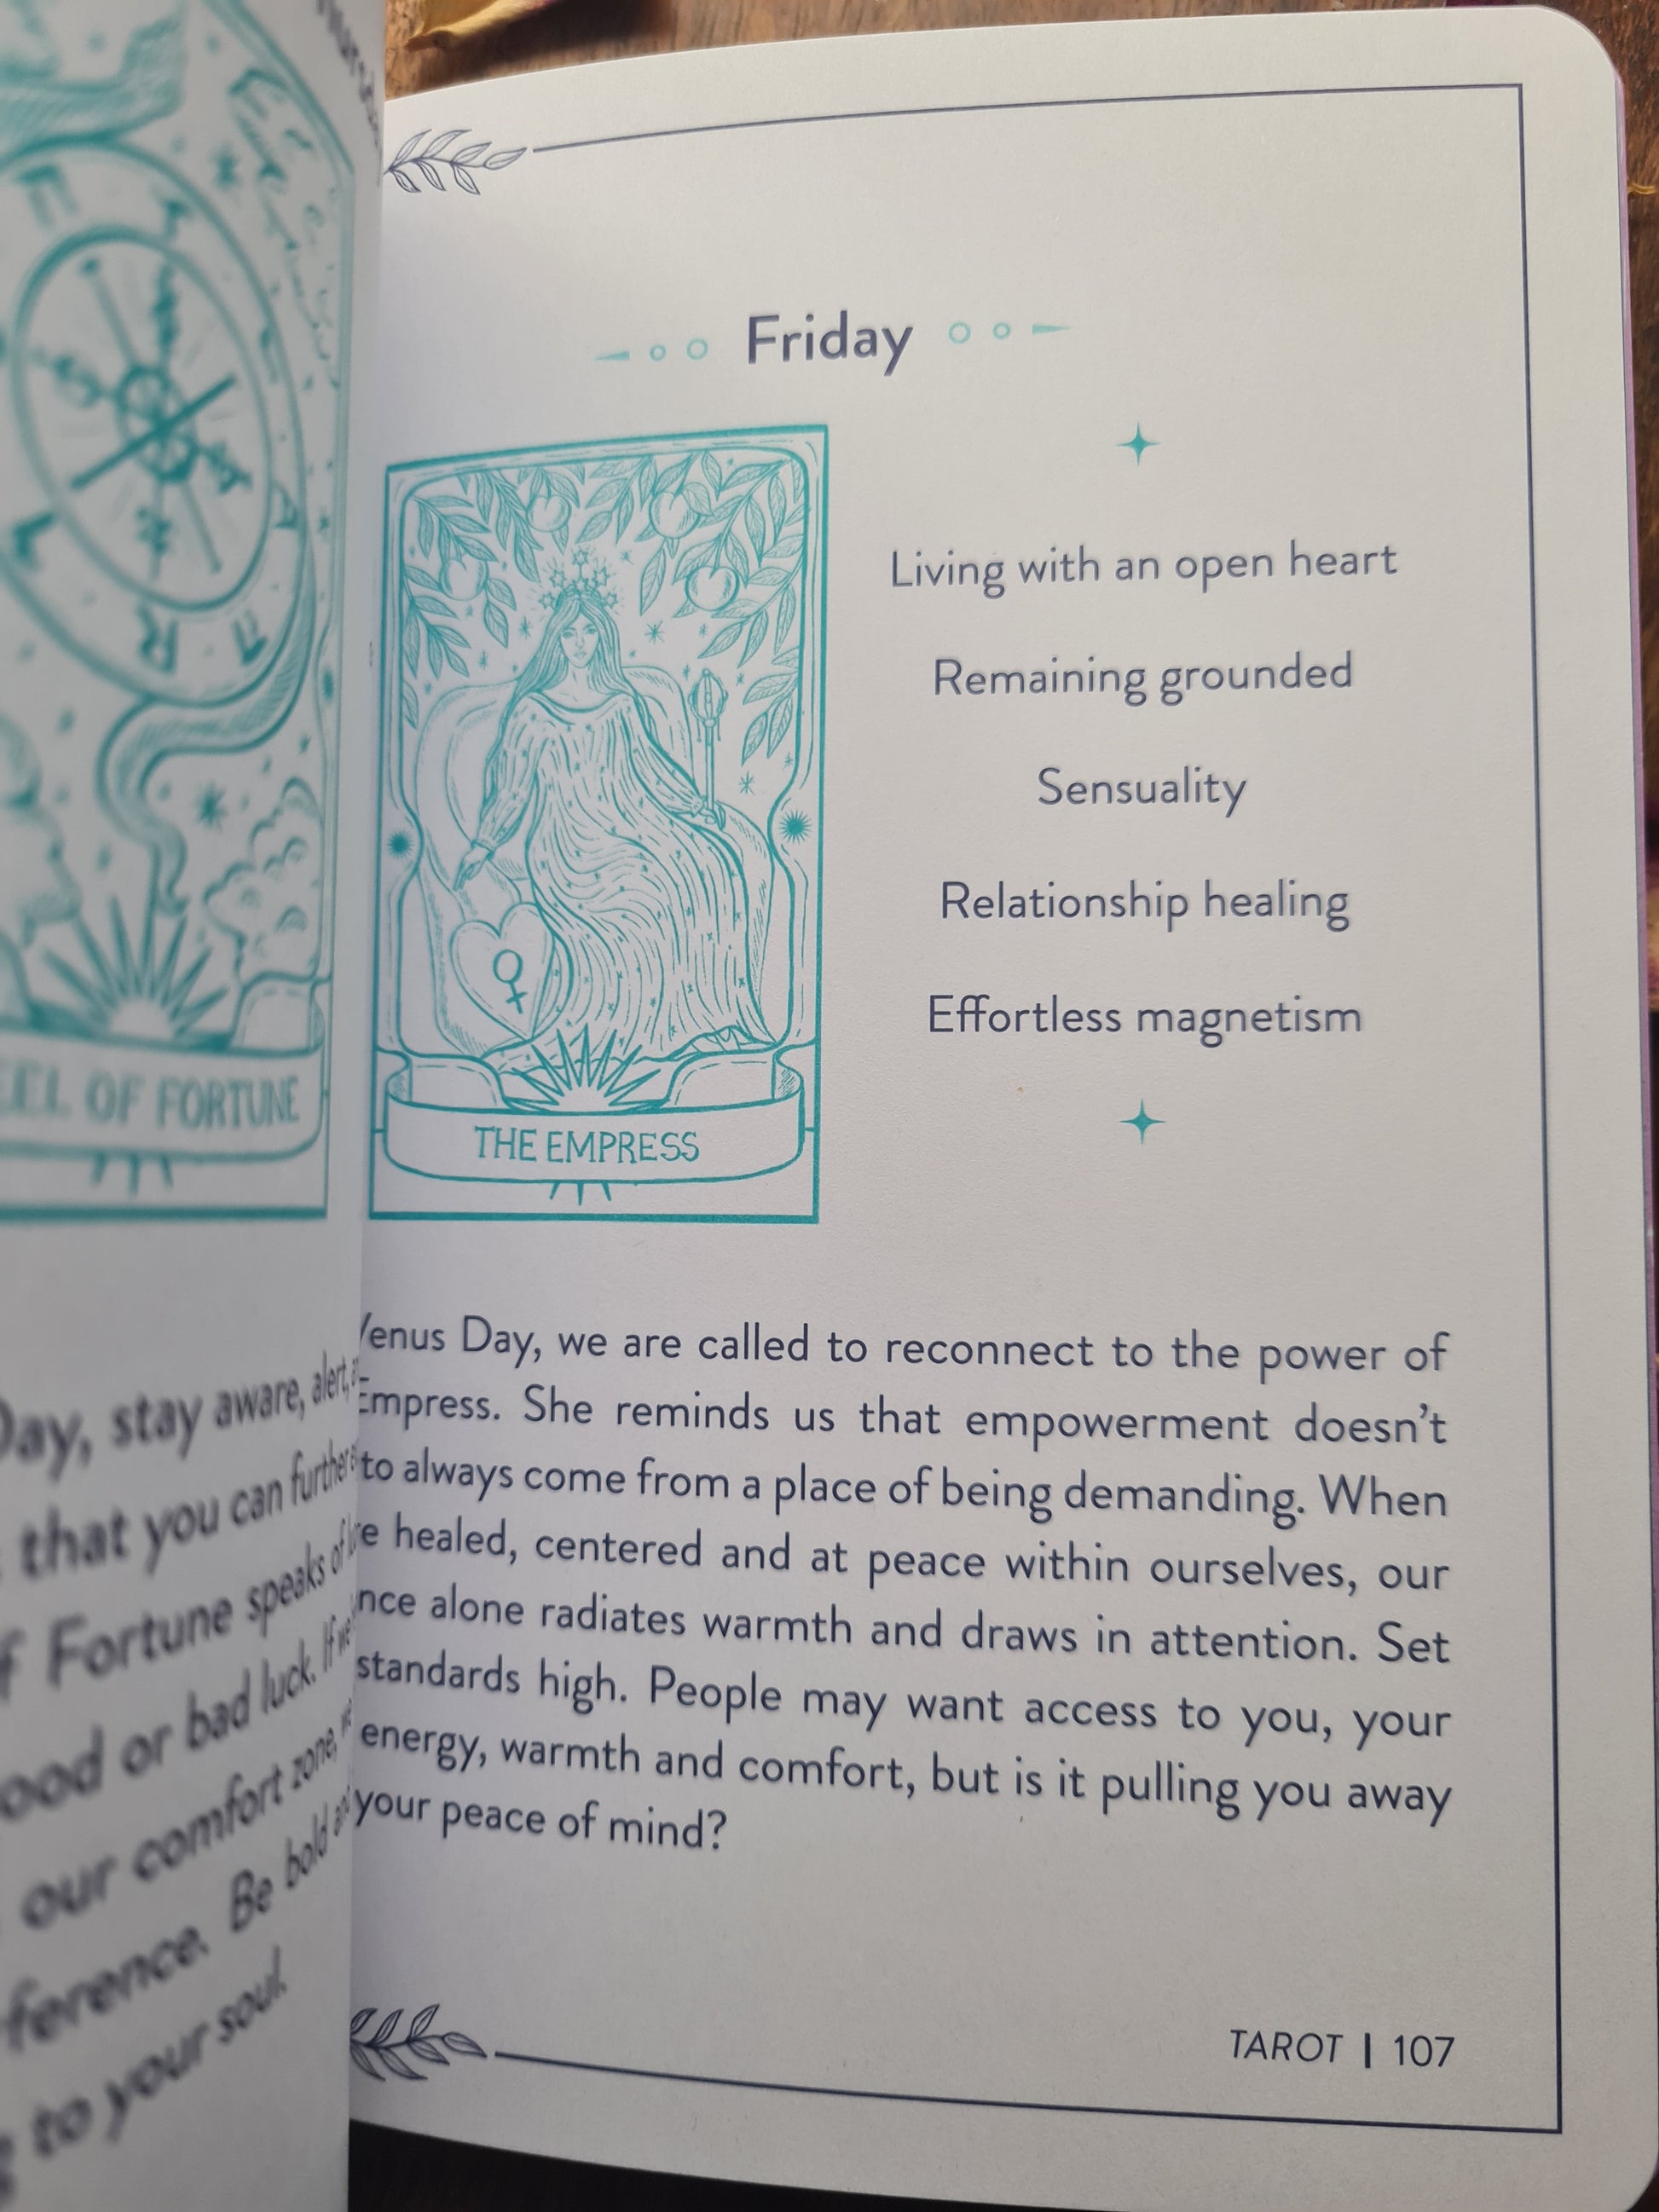 EEL OF FORTUNE
Day, stay aware, alert,
that you can further
f Fortune speaks of
ood or bad luck. If we
our comfort zone,
ference. Be bold
to your soul.
Friday
Living with an open heart
Remaining grounded
Sensuality
Relationship healing
Effortless magnetism
THE EMPRESS
Venus Day, we are called to reconnect to the power of
Empress. She reminds us that empowerment doesn't
to always come from a place of being demanding. When
re healed, centered and at peace within ourselves, our
nce alone radiates warmth and draws in attention. Set
standards high. People may want access to you, your
energy, warmth and comfort, but is it pulling you away
your peace of mind?
TAROT | 107